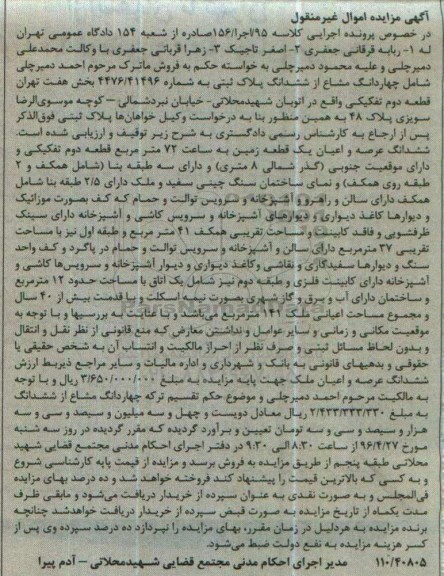 آگهی مزایده اموال غیرمنقول
در خصوص پرونده اجرایی کلاسه ۹۵/اجرا/۱۵۶صادره از شعبه ۱۵۴ دادگاه عمومی تهران
له ۱- ربابه قرقانی جعفری ۲- اصغر تاجیک ۳- زهرا قربانی جعفری با وکالت محمدعلی
دمیرچلی و علیه محمود دمیرچلی به خواسته حکم به فروش ماترک مرحوم احمد دمیرچلی
شامل چهاردانگ مشاع از ششدانگ پلاک ثبتی به شماره ۴۴۷۶/۴۱۴۹۶ بخش هفت تهران
قطعه دوم تفکیکی واقع در اتوبان شهیدمحلاتی- خیابان نبردشمالی – کوچه موسوی‌الرضا
سویزی پلاک ۴۸ به همین منظور بنا به درخواست وکیل خواهان‌ها پلاک ثبتی فوق‌الذکر
پس از ارجاع به کارشناس رسمی دادگستری به شرح زیر توقیف و ارزیابی شده است.
ششدانگ عرصه و اعیان یک قطعه زمین به مساحت ۷۲ متر مربع قطعه دوم تفکیکی و
دارای موقعیت جنوبی (گذر شمالی ۸ متری) و دارای سه طبقه بنا (شامل همکف و ۲
طبقه روی همکف) و نمای ساختمان سنگ چینی سفید و ملک دارای ۲/۵ طبقه بنا شامل
همکف دارای سالن و راهرو و آشپزخانه و سرویس توالت و حمام که کف بصورت موزائیک
و دیوارها کاغذ دیواری و دیوارهای آشپزخانه و سرویس کاشی و آشپزخانه دارای سینک
ظرفشویی و فاقد کابینت و مساحت تقریبی همکف ۴۱ متر مربع و طبقه اول نیز با مساحت
تقریبی ۳۷ مترمربع دارای سالن و آشپزخانه و سرویس توالت و حمام در پاگرد و کف واحد
سنگ و دیوارها سفیدکاری و نقاشی وکاغذ دیواری و دیوار آشپزخانه و سرویس‌ها کاشی و
آشپزخانه دارای کابینت فلزی و طبقه دوم نیز شامل یک اتاق با مساحت حدود ۱۲ مترمربع
و ساختمان دارای آب و برق و گاز شهری بصورت نیمه اسکلت و با قدمت بیش از ۴۰ سال
و مجموع مساحت اعیانی ملک ۱۴۱ مترمربع می‌باشد و با عنایت به بررسیها و با توجه به
موقعیت مکانی و زمانی و سایر عوامل و نداشتن معارض که منع قانونی از نظر نقل و انتقال
و بدون لحاظ مسائل ثبتی و صرف نظر از احراز مالکیت و انتساب آن به شخص حقیقی یا
حقوقی و بدهیهای قانونی به بانک و شهرداری و اداره مالیات و سایر مراجع ذیربط ارزش
ششدانگ عرصه و اعیان ملک جهت پایه مزایده به مبلغ ۳/۶۵۰/۰۰۰/۰۰۰ ریال و با توجه
به مالکیت مرحوم احمد دمیرچلی و موضوع حکم تقسیم ترکه چهاردانگ مشاع از ششدانگ
به مبلغ ۲/۴۳۳/۳۳۳/۳۳۰ ریال معادل دویست و چهل و سه میلیون و سیصد و سی و سه
هزار و سیصد و سی و سه تومان تعیین و برآورد گردیده که مقرر گردیده در روز سه شنبه
مورخ ۹۶/۴/۲۷ از ساعت ۸:۳۰ الی ۹:۳۰ در دفتر اجرای احکام مدنی مجتمع قضایی شهید
محلاتی طبقه پنجم از طریق مزایده به فروش برسد و مزایده از قیمت پایه کارشناسی شروع
و به کسی که بالاترین قیمت را پیشنهاد کند فروخته خواهد شد و ده درصد بهای مزایده
فی‌المجلس و به صورت نقدی به عنوان سپرده از خریدار دریافت می‌شود و مابقی ظرف
مدت یکماه از تاریخ مزایده به صورت قبض سپرده از خریدار دریافت خواهدشد چنانچه
برنده مزایده به هردلیل در زمان مقرر، بهای مزایده را نپردازد ده درصد سپرده وی پس از
کسر هزینه مزایده به نفع دولت ضبط می‌شود.
۱۱۰/۴۰۸۰۵ مدیر اجرای احکام مدنی مجتمع قضایی شهیدمحلاتی – آدم پیرا